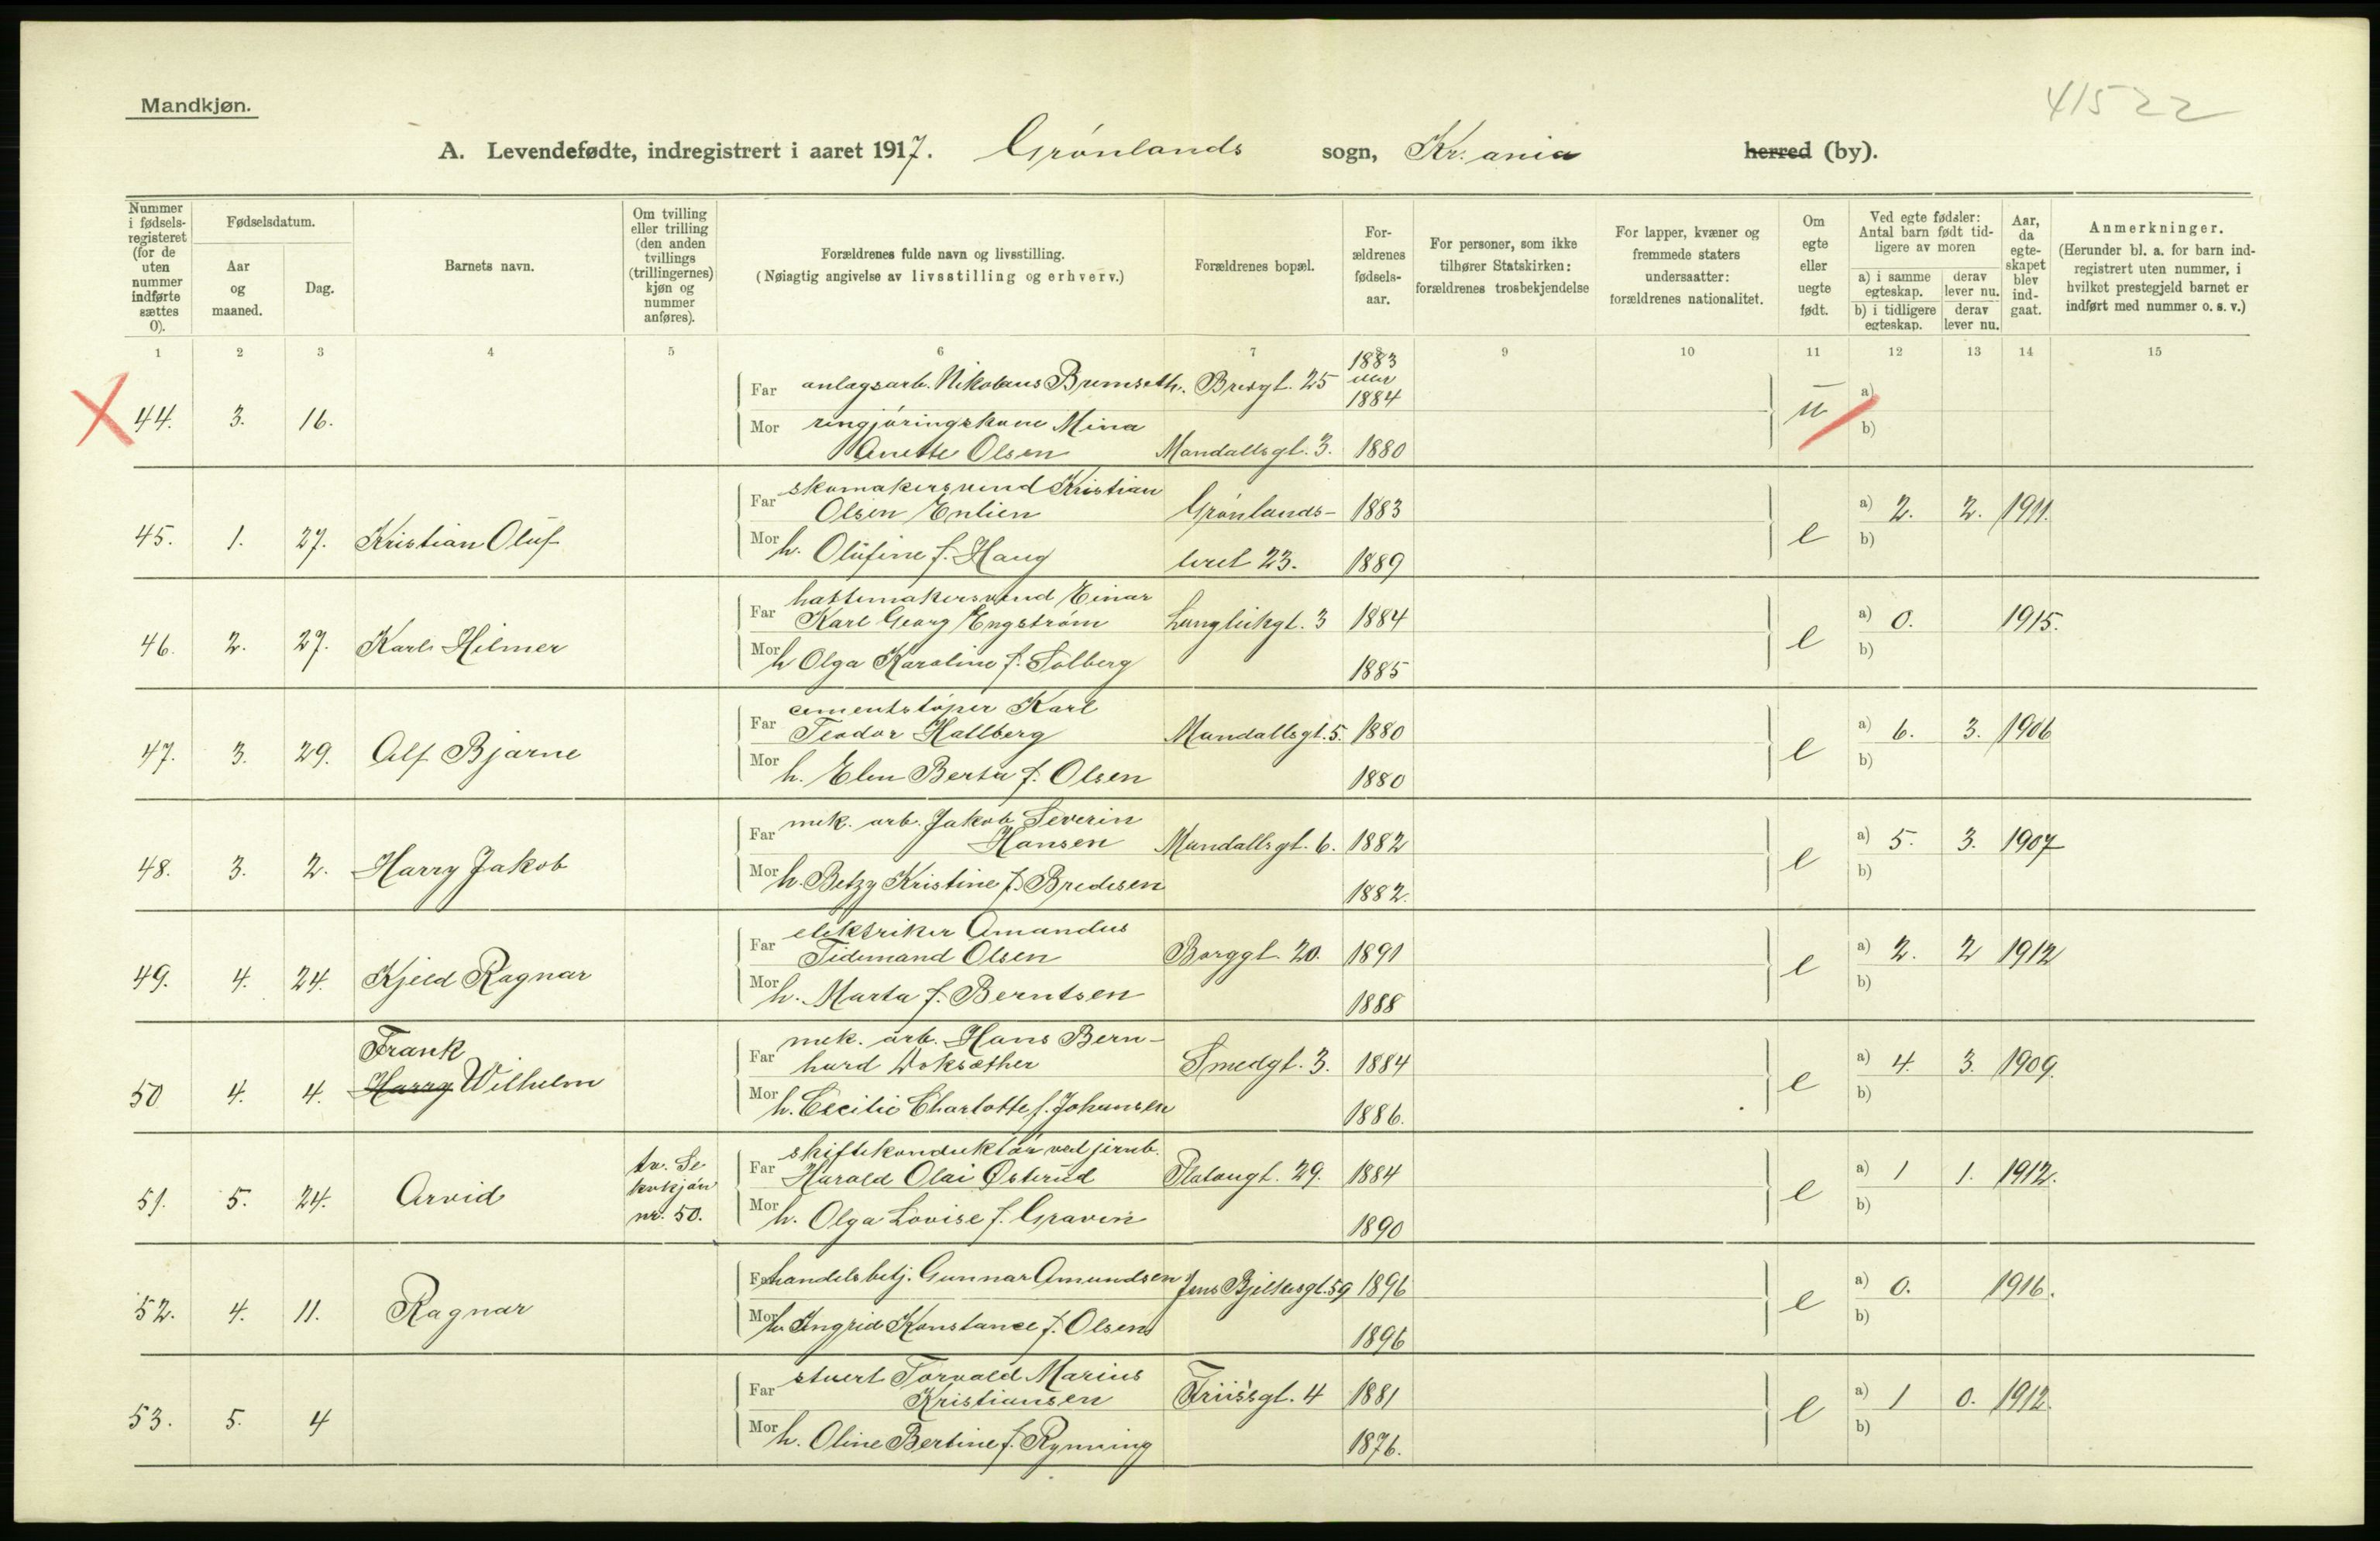 Mandkjøn.
41522
A. Levendefødte, indregistrert i aaret 1917. Grønlands sogn, Kr.ania herred (by).
Nummer i fødselsregisteret (for de uten nummer indførte sættes 0).
Fødselsdatum.
Aar og maaned.
Dag.
Barnets navn.
Om tvilling eller trilling (den anden tvillings (trillingernes) kjøn og nummer anføres).
Forældrenes fulde navn og livsstilling.
(Nøiagtig angivelse av livsstilling og erhverv.)
Forældrenes bopæl.
Forældrenes fødselsaar.
For personer, som ikke tilhører Statskirken: forældrenes trosbekjendelse
For lapper, kvæner og fremmede staters undersaatter: forældrenes nationalitet.
Om egte eller uegte født.
Ved egte fødsler: Antal barn født tidligere av moren
a) i samme egteskap.
derav lever nu.
b) i tidligere egteskap.
derav lever nu.
Aar, da egteskapet blev indgaat.
Anmerkninger.
(Herunder bl. a. for barn indregistrert uten nummer, i hvilket prestegjeld barnet er indført med nummer o. s. v.)
1 2 3 4 5 6 7 8 9 10 11 12 13 14 15
44. 3. 16.
Far anlagsarb. Nikolaus Brumseth. Breigt. 25 1883 eller 1884
Mor rengjøringskone Mina
Anette Olsen Mandallsgt. 3. 1880
u a) b)
45. 1. 27. Kristian Oluf
Far skomakersvend Kristian
Olsen Enlien Grønlands- 1883
Mor h. Olufine f. Haug leret 23. 1889
e a) 2. 2. 1911. b)
46. 2. 27. Karl Hilmer
Far hattemakersvend Einar
Karl Georg Engstrøm Langleikgt. 3 1884
Mor h Olga Karoline f. Solberg 1885
e a) 0. 1915. b)
47. 3. 29. Alf Bjarne
Far cementstøper Karl
Teodor Hallberg Mandallsgt. 5. 1880
Mor h. Elen Berta f. Olsen 1880
e a) 6. 3. 1906 b)
48. 3. 2. Harry Jakob
Far mek. arb. Jakob Severin
Hansen Mandallsgt. 6. 1882
Mor h. Betzy Kristine f. Bredesen 1882.
e a) 5. 3. 1907 b)
49. 4. 24. Kjeld Ragnar
Far elektriker Amandus
Tidemand Olsen Borggt. 20. 1891
Mor h. Marta f. Berntsen 1888
e a) 2. 2 1912 b)
50 4. 4. Frank
Harry Wilhelm
Far mek. arb. Hans Bern-
hard Woksæther Smedgt. 3. 1884
Mor h. Cecilie Charlotte f. Johansen 1886.
e a) 4. 3. 1909. b)
51. 5. 24. Arvid
tv. Se
kvkjøn
nr. 50.
Far skiftekonduktør ved jernb.
Harald Olai Østerud Platougt. 29. 1884
Mor h. Olga Lovise f. Graven 1890
e a) 1 1. 1912. b)
52. 4. 11. Ragnar
Far handelsbetj. Gunnar Amundsen Jens Bjelkesgt. 59 1896
Mor h. Ingrid Konstance f. Olsen 1896
e a) 0. 1916. b)
53. 5. 4
Far stuert Torvald Marius
Kristiansen Friisgt. 4 1881
Mor h. Oline Bertine f. Rynning 1876.
e a) 1 0. 1912. b)